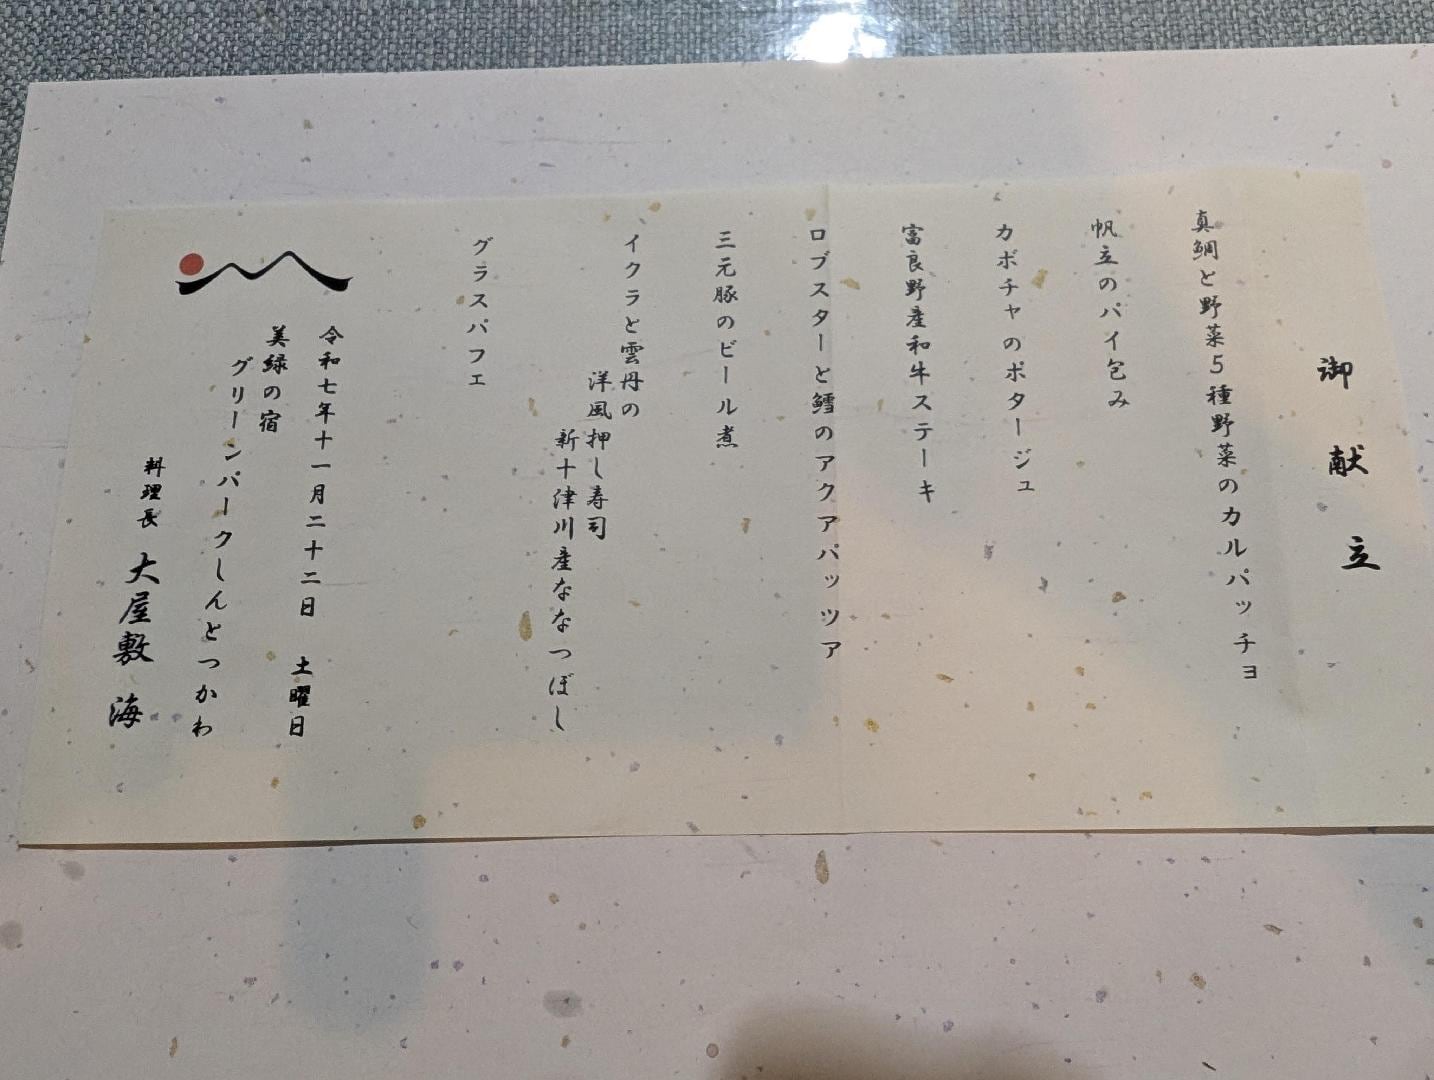 御献立
真鯛と野菜5種野菜のカルパッチョ
帆立のパイ包み
カボチャのポタージュ
富良野産和牛ステーキ
ロブスターと鱈のアクアパッツア
三元豚のビール煮
イクラと雲丹の
洋風押し寿司
新十津川産ななつぼし
グラスパフェ
令和七年十一月二十二日 土曜日
美緑の宿
グリーンパークしんとつかわ
料理長 大屋敷 海